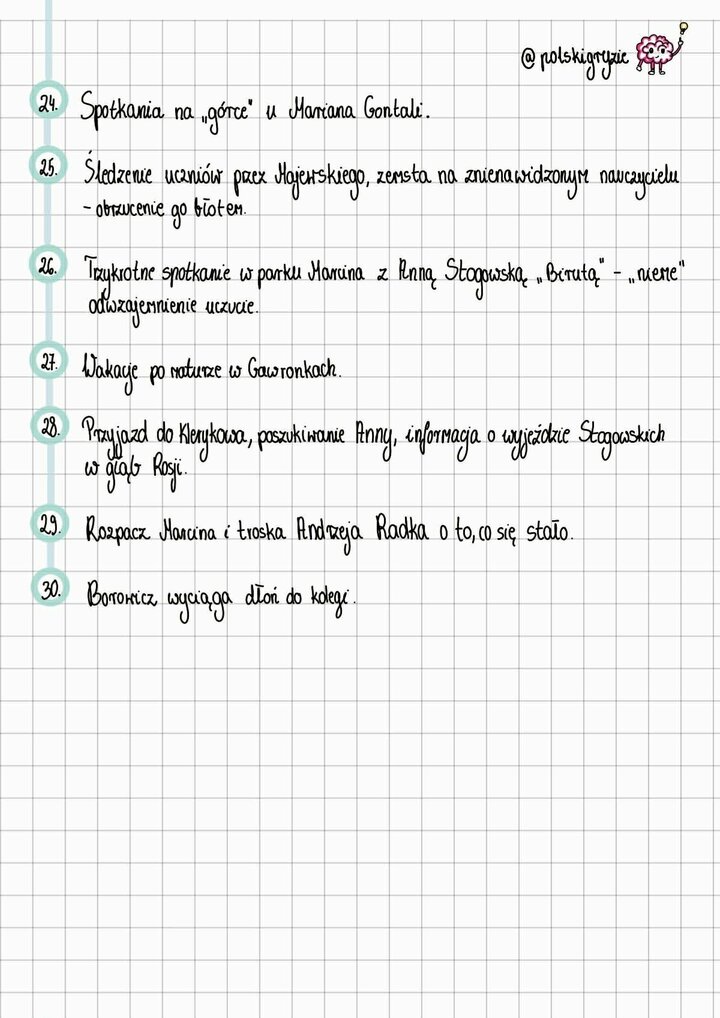 @polskigryzie
24. Spotkania na „górce" u Mariana Gontali.
25. Śledzenie uczniów przez Majewskiego, zemsta na znienawidzonym nauczycielu
- obrzucenie go błotem.
26. Trzykrotne spotkanie w parku Marcina z Anną Stogowską „Birutą" - „nieme"
odwzajemnienie uczucie.
27. Wakacje po maturze w Gawronkach.
28. Przyjazd do Klerykowa, poszukiwanie Anny, informacja o wyjeździe Stogowskich
w głąb Rosji.
29. Rozpacz Marcina i troska Andrzeja Radka o to, co się stało.
30. Borowicz wyciąga dłoń do kolegi.